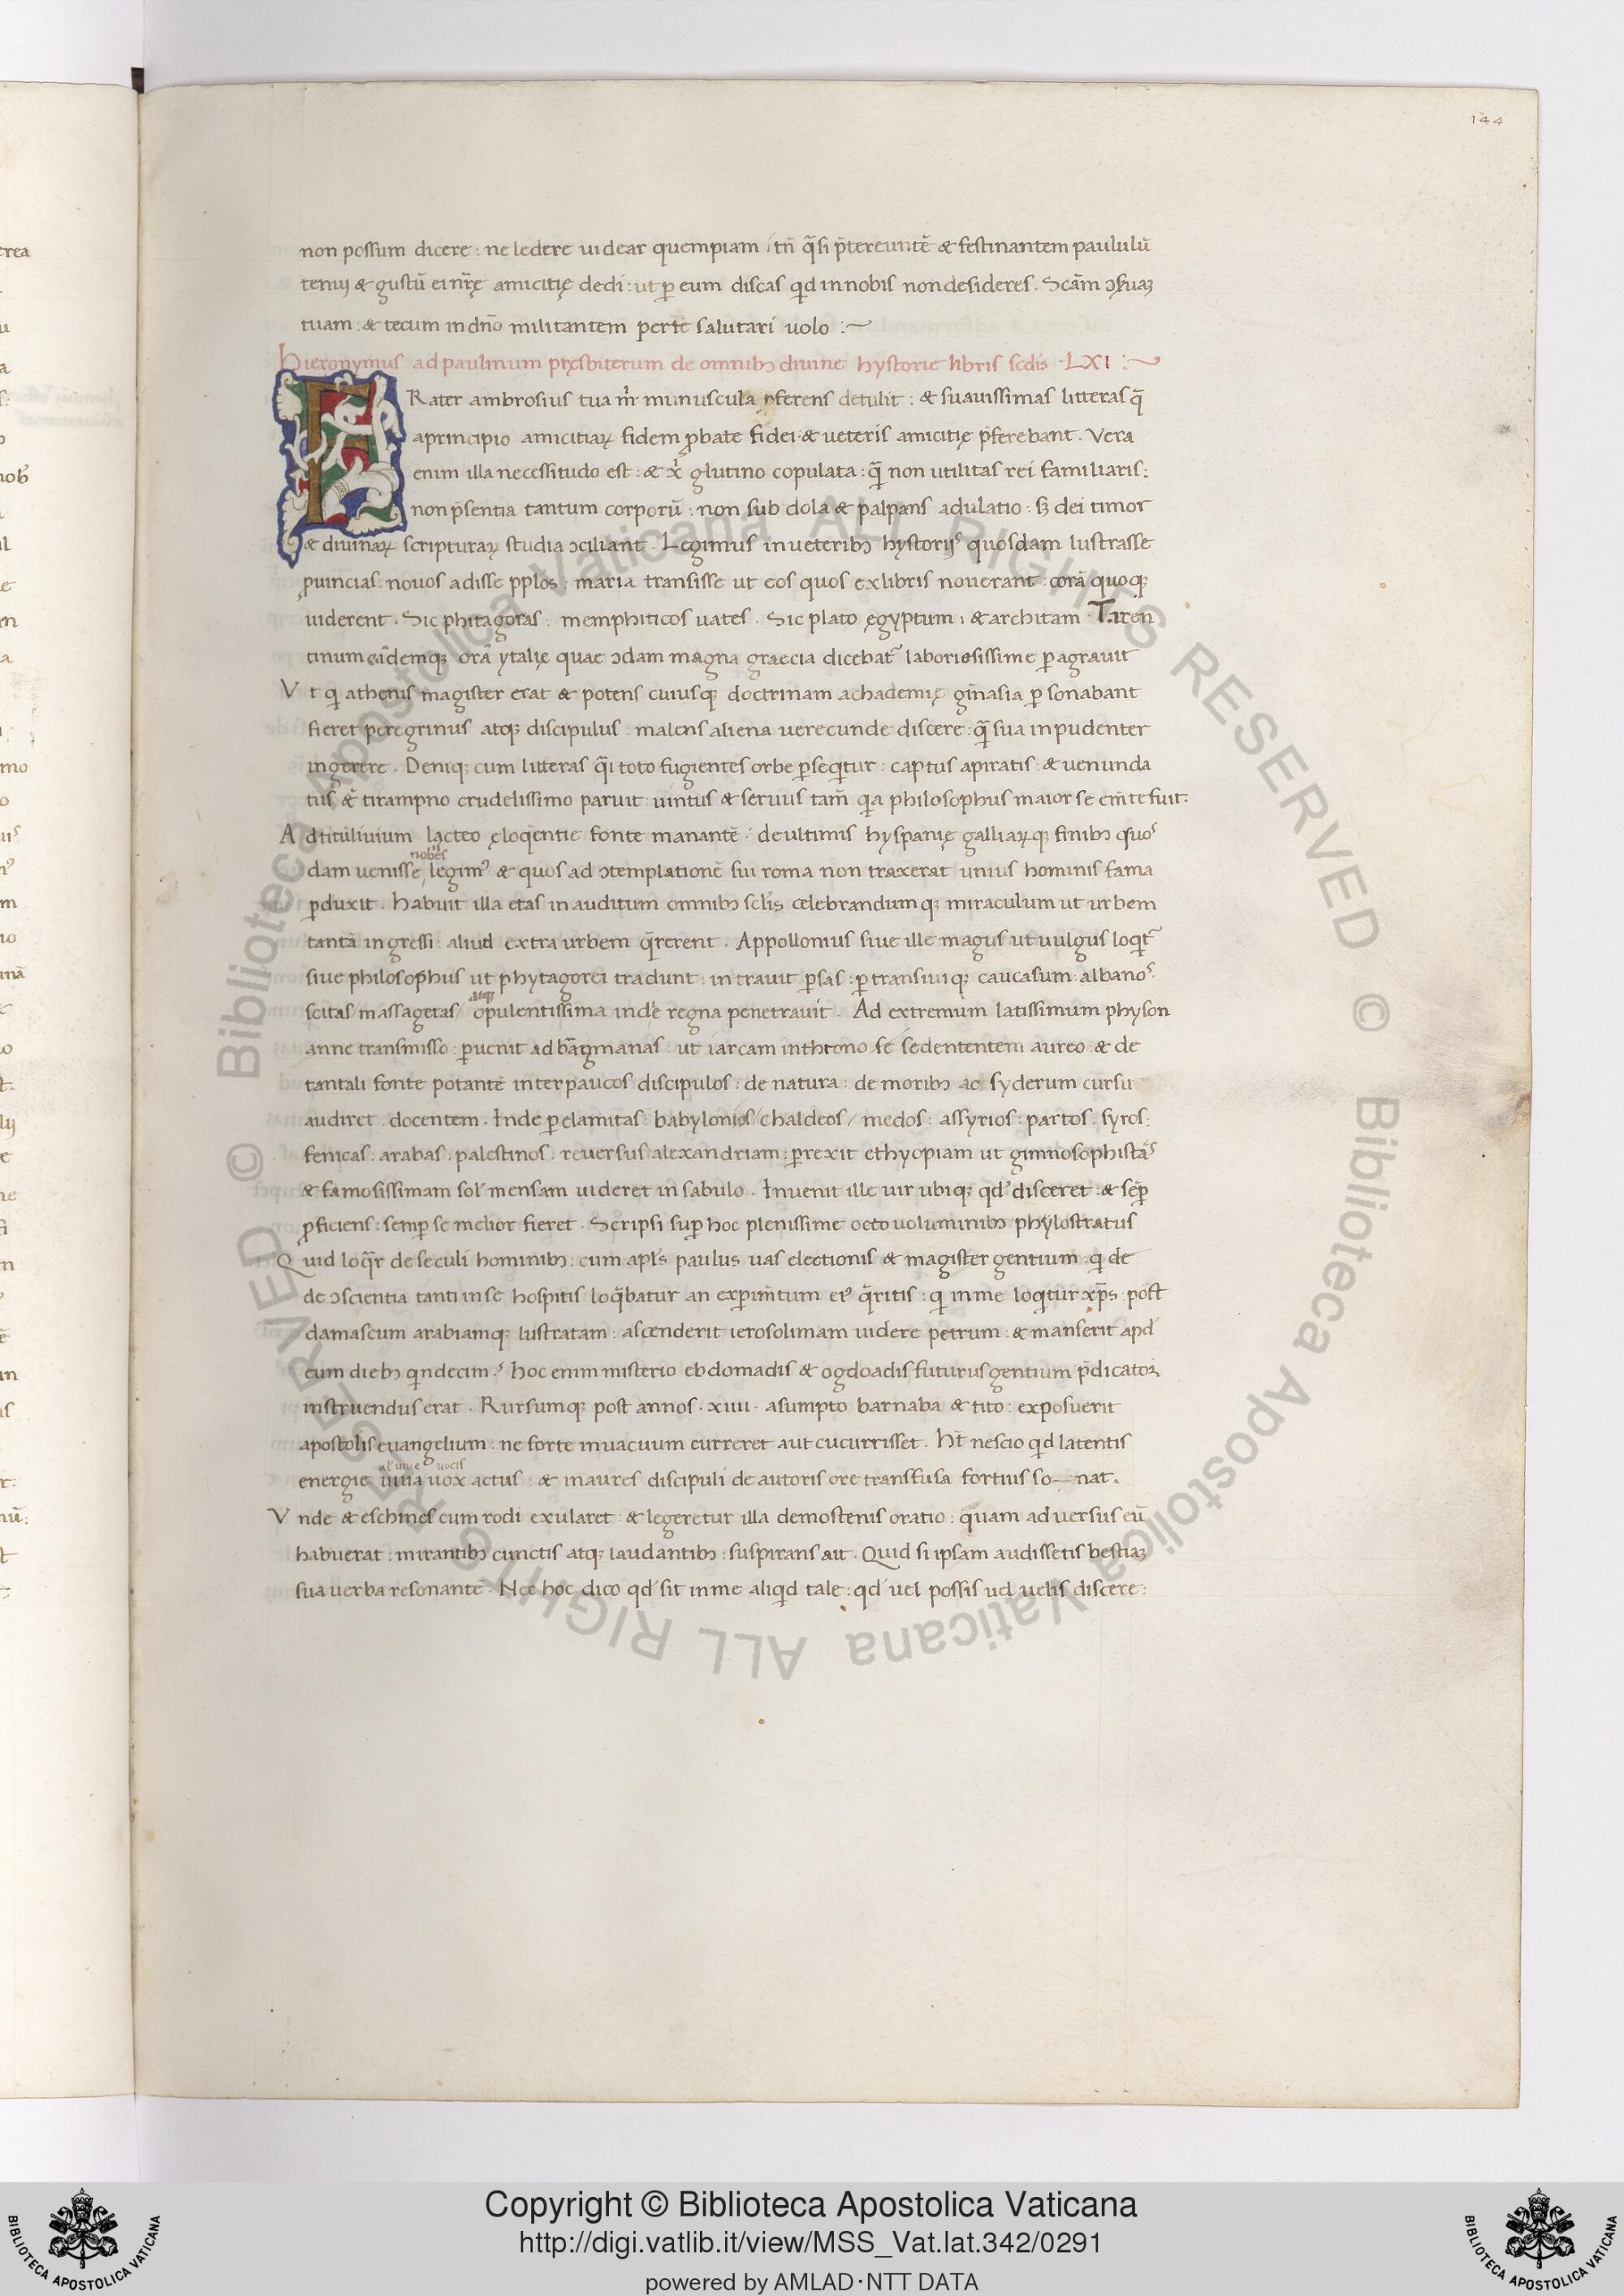 144
non possum dicere : ne ledere uidear quempiam / tñ q̃si p̃tereuntẽ & festinantem paululũ
tenui & gustũ ei nr̃ę amicitię dedi : ut ꝑ eum discas qd in nobis non desideres . Scãm ↄẜuaꝫ
tuam : & tecum in dño militantem per te salutari uolo :~
Hieronymus ad paulinum pręsbiterum de omnibꝫ diuine hystorie libris scdis ·LXI :~
FRater ambrosius tua m̃ munuscula ꝑferens detulit : & suauissimas litteras q̃
a principio amicitiaꝝ fidem ꝓbate fidei & ueteris amicitię p̃ferebant . Vera
enim illa necessitudo est : & x̃ glutino copulata : q̃ non utilitas rei familiaris :
non p̃sentia tantum corporũ : non sub dola & palpans adulatio : sꝫ dei timor
& diuinaꝝ scripturaꝝ studia ↄciliant . Legimus in ueteribꝫ hystorijs quosdam lustrasse
ꝓuincias : nouos adisse pplos : maria transisse ut eos quos ex libris nouerant : corã quoqꝫ
uiderent . Sic phitagoras : memphiticos uates . Sic plato ęgyptum : & architam Taren
tinum eãdemqꝫ orã ytalię quae ↄdam magna graecia dicebat̃ laboriosissime ꝑagrauit
Vt qi athenis magister erat & potens cuiusqꝫ doctrinam achademię gĩnasia ꝑsonabant
fieret peregrinus atqꝫ discipulus : malens aliena uerecunde discere : q̃ sua inpudenter
ingerere . Deniqꝫ cum litteras q̃i toto fugientes orbe ꝑseqitur : captus apiratis : & uenunda
tus & tirampno crudelissimo paruit : uintus & seruus tam̃ qia philosophus maior se em̃te fuit .
Ad titũliuium lacteo ęloqentie fonte manantẽ : de ultimis hyspanię galliaꝝqꝫ finibꝫ quos
nobẽs
dam uenisse legim9 & quos ad ↄtemplationẽ sui roma non traxerat unius hominis fama
ꝑduxit . Habuit illa etas in auditum omnibꝫ sclis celebrandumqꝫ miraculum ut urbem
tantã ingressi : aliud extra urbem q̃rerent . Appollonius siue ille magus ut uulgus loqit̃
siue philosophus ut phytagorei tradunt : intrauit ꝑsas : ꝑtransiuiqꝫ caucasum : albanos
atqꝫ
scitas / massagetas / opulentissima inde regna penetrauit . Ad extremum latissimum physon
amne transmisso : ꝑuenit ad bãgmanas : ut iarcam in throno se sedententem aureo : & de
tantali fonte potantẽ inter paucos discipulos : de natura : de moribꝫ ac syderum cursu
audiret docentem . Inde ꝑ elamitas babylonios / chaldeos / medos : assyrios : partos : syros :
fenicas : arabas : palestinos : reuersus alexandriam : ꝑrexit ethyopiam ut gimnosophistas
& famosissimam sol̃ mensam uideret in sabulo . Inuenit ille uir ubiqꝫ qd̃ disceret : & sẽꝑ
ꝓficiens : semꝑ se melior fieret . Scripsi suꝑ hoc plenissime octo uoluminibꝫ phylostratus
Quid loq̃r de seculi hominibꝫ : cum apl̃s paulus uas electionis & magister gentium : qi de
de ↄscientia tanti in se hospitis loq̃batur an exꝑim̃tum ei9 q̃ritis : qi in me loqitur xp̃s : post
damascum arabiamqꝫ lustratam : ascenderit ierosolimam uidere petrum : & manserit apd̃
eum diebꝫ qindecim . hoc enim misterio ebdomadis & ogdoadis futurus gentium p̃dicatoꝝ
instruendus erat . Rursumqꝫ post annos . xiiii . asumpto barnaba & tito : exposuerit
apostolis euangelium : ne forte in uacuum curreret aut cucurrisset . Ht̃ nescio qid latentis
al' uiue uocis
energie uiua uox actus : & in aures discipuli de autoris ore transfusa fortius so—nat .
Vnde & eschines cum rodi exularet & legeretur illa demostenis oratio : quam aduersus eũ
habuerat : mirantibꝫ cunctis atqꝫ laudantibꝫ : suspirans ait . Quid si ipsam audissetis bestiaꝫ
sua uerba resonantẽ . Nec hoc dico qd̃ sit in me aliqid tale : qd̃ uel possis uel uelis discere :
Copyright © Biblioteca Apostolica Vaticana
http://digi.vatlib.it/view/MSS_Vat.lat.342/0291
powered by AMLAD·NTT DATA